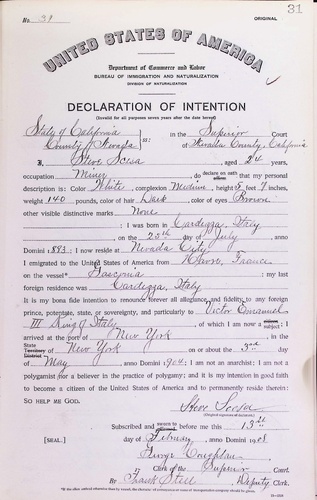 31
No. 31
ORIGINAL
UNITED STATES OF AMERICA
Department of Commerce and Labor
BUREAU OF IMMIGRATION AND NATURALIZATION
DIVISION OF NATURALIZATION
DECLARATION OF INTENTION
(Invalid for all purposes seven years after the date hereof)
State of California
County of Nevada ss: in the Superior Court
of Nevada County, California
I, Steve Scesa, aged 24 years,
occupation Miner, do declare on oath that my personal
description is: Color White, complexion Medium, height 5 feet 7 inches,
weight 140 pounds, color of hair Dark, color of eyes Brown
other visible distinctive marks None
I was born in Italy
on the day of July, anno
Domini 1883; I now reside at Nevada City
I emigrated to the United States of America from Havre, France
on the vessel* Gasconia; my last
foreign residence was Italy
It is my bona fide intention to renounce forever all allegiance and fidelity to any foreign
prince, potentate, state, or sovereignty, and particularly to Victor Emanuel
III King of Italy, of which I am now a subject; I
arrived at the port of New York, in the
State of New York on or about the 3rd day
of May, anno Domini 1904; I am not an anarchist; I am not a
polygamist nor a believer in the practice of polygamy; and it is my intention in good faith
to become a citizen of the United States of America and to permanently reside therein:
SO HELP ME GOD.
Steve Scesa
(Original signature of declarant)
Subscribed and sworn to before me this 13th
[SEAL.] day of February, anno Domini 1908
George Coughlan
Clerk of the Superior Court.
By Steel, Deputy Clerk.